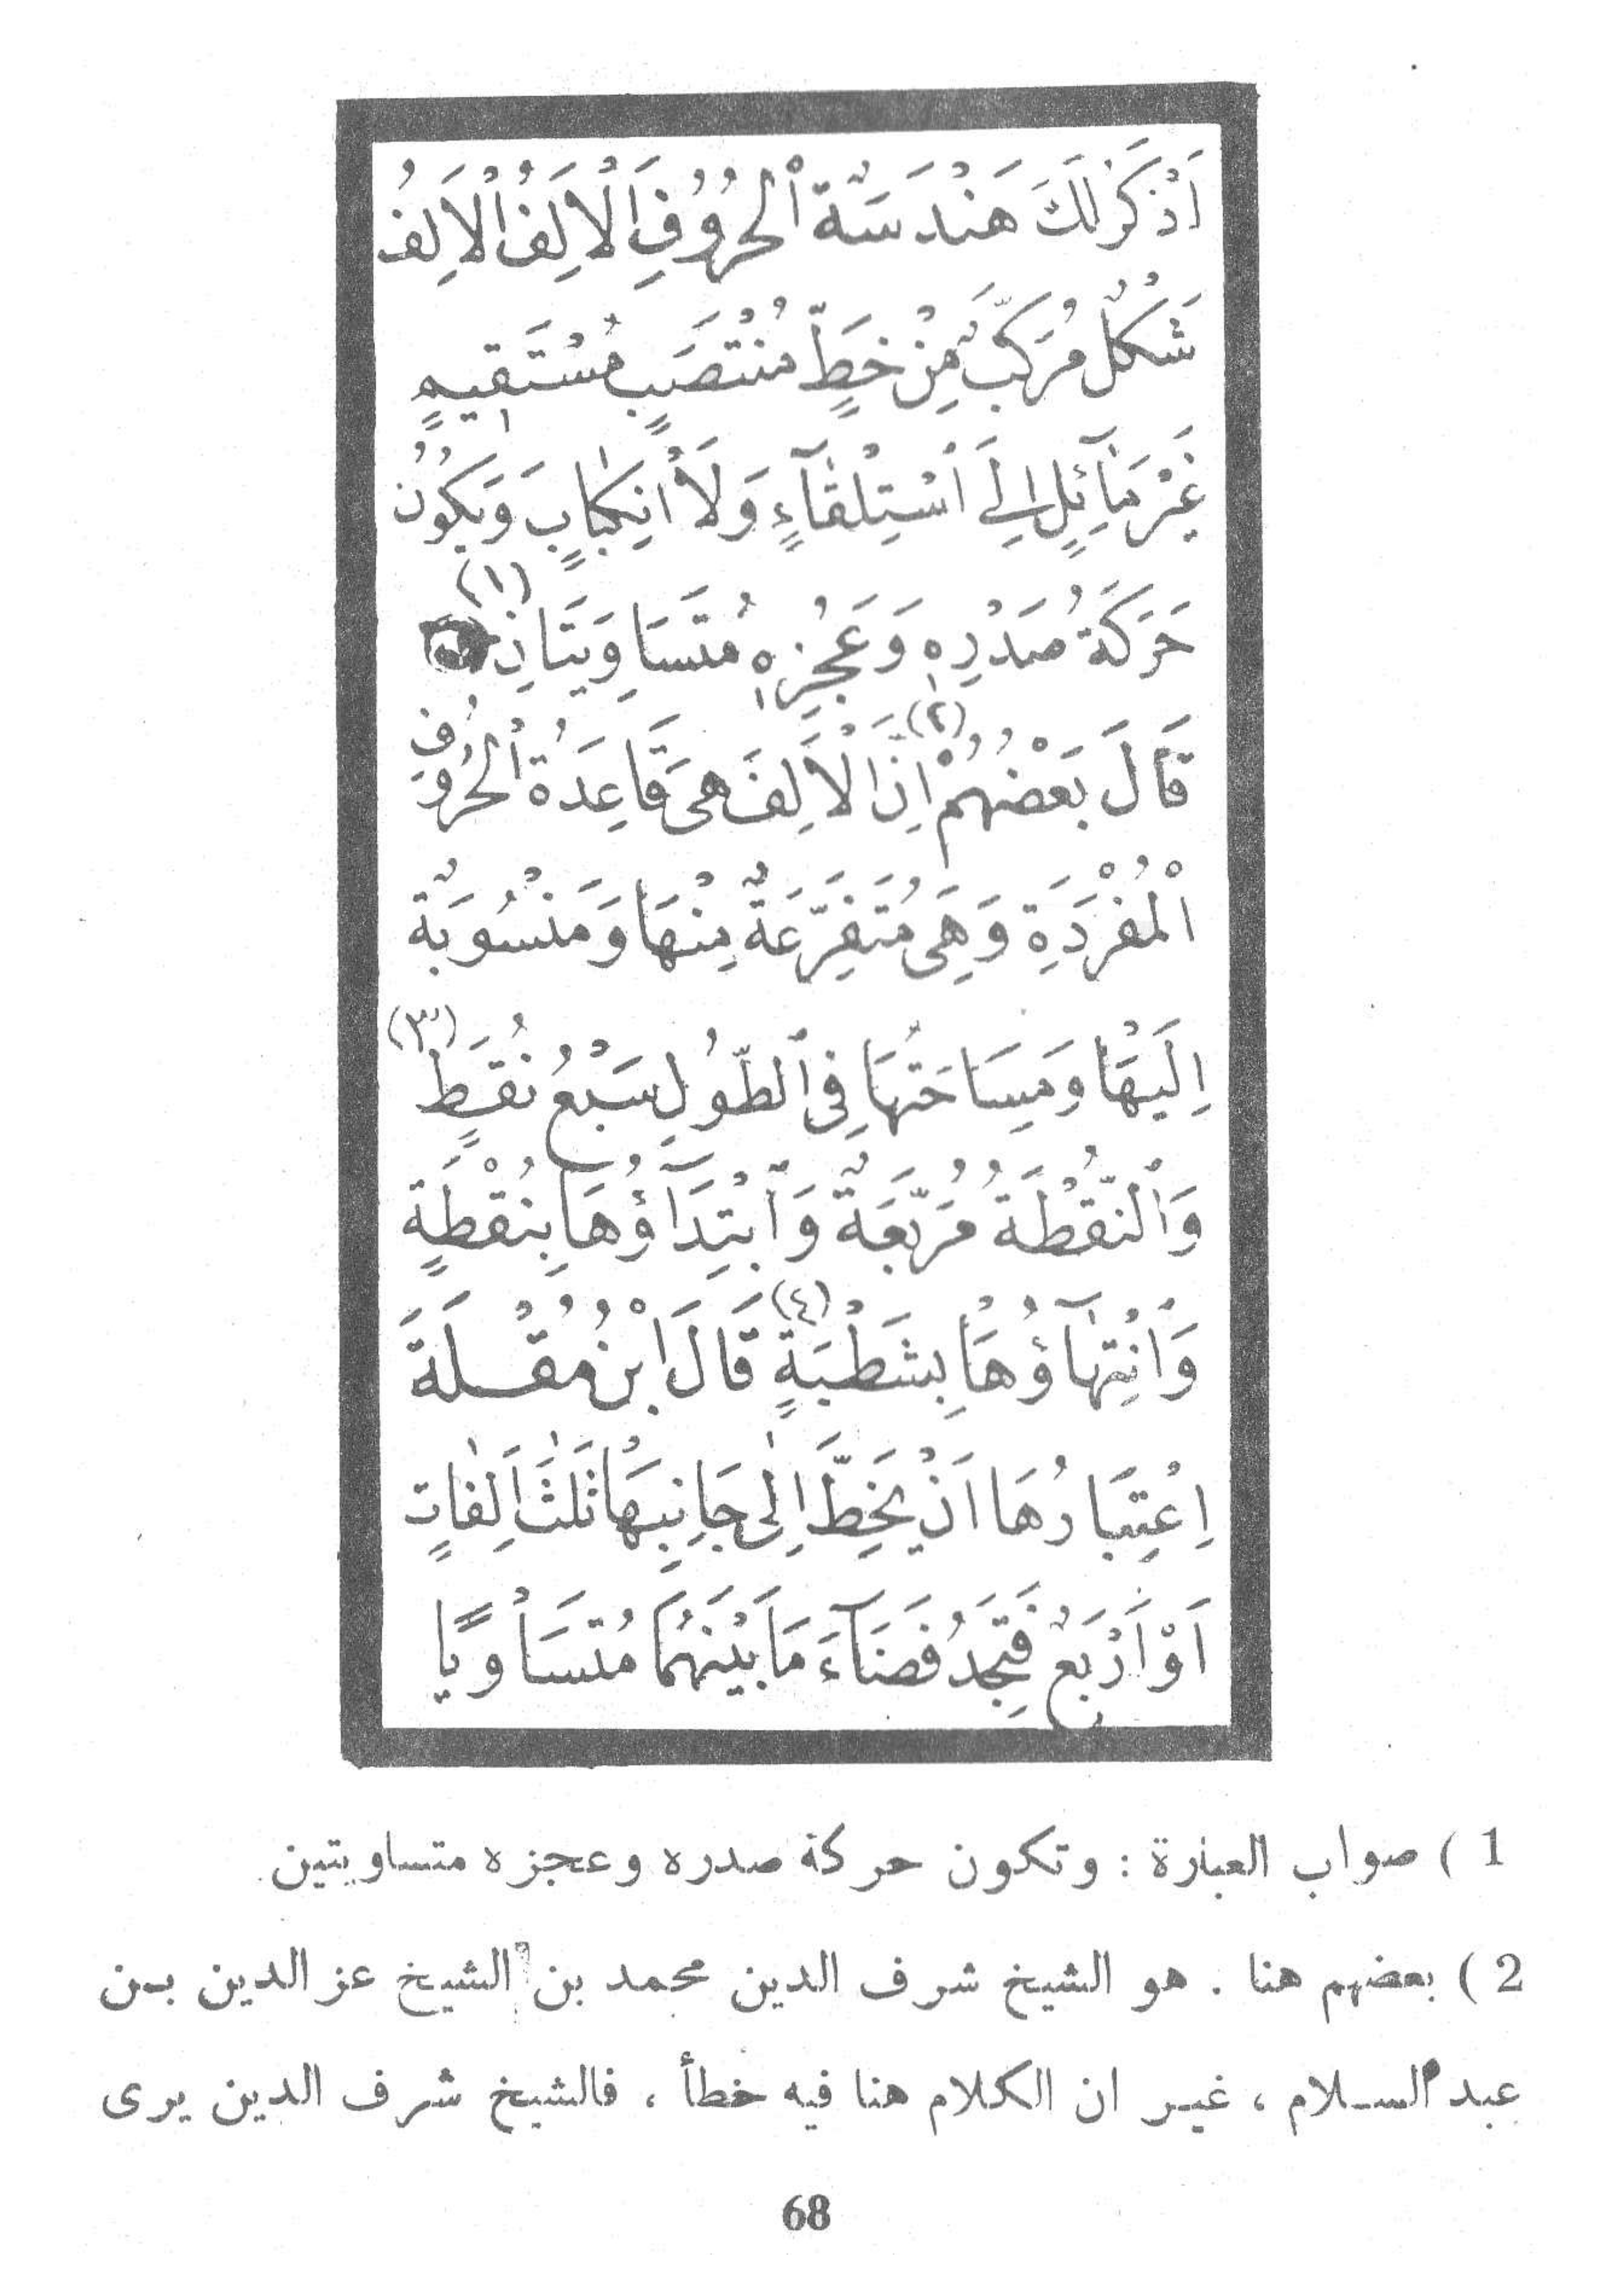 اَذْكُرُ لَكَ هَنْدَسَةَ الْحُرُوفِ اَلْاَلِفُ اَلْاَلِفُ
شَكْلٌ مُرَكَّبٌ مِنْ خَطٍّ مُنْتَصَبٍ مُسْتَقِيمٍ
غَيْرِ مَآئِلٍ اِلَى اسْتِلْقَآءٍ وَلَا انْكِبَابٍ وَيَكُونُ
حَرَكَةُ صَدْرِهِ وَعَجُزِهِ مُتَسَاوِيَتَانِ (١)
قَالَ بَعْضُهُمْ (٢) اِنَّ الْاَلِفَ هِيَ قَاعِدَةُ الْحُرُوفِ
الْمُفْرَدَةِ وَهِيَ مُتَفَرِّعَةٌ مِنْهَا وَمَنْسُوبَةٌ
اِلَيْهَا وَمِسَاحَتُهَا فِي الطُّولِ سَبْعُ نُقَطٍ (٣)
وَالنُّقْطَةُ مُرَبَّعَةٌ وَابْتِدَآؤُهَا بِنُقْطَةٍ
وَانْتِهَآؤُهَا بِشَطْبَةٍ (٤) قَالَ ابْنُ مُقْلَةَ
اِعْتِبَارُهَا اَنْ يَخُطَّ اِلٰى جَانِبِهَا ثَلٰثَ اَلِفَاتٍ
اَوْ اَرْبَعٌ فَتَجِدُ فَضَآءَ مَا بَيْنَهُمَا مُتَسَاوِيًا
1 ) صواب العبارة : وتكون حركة صدره وعجزه متساويتين.
2 ) بعضهم هنا . هو الشيخ شرف الدين محمد بن الشيخ عز الدين بن
عبد السلام ، غير ان الكلام هنا فيه خطأ ، فالشيخ شرف الدين يرى
68